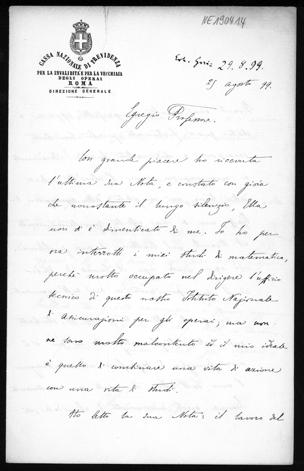 NE190414
CASSA NAZIONALE DI PREVIDENZA
PER LA INVALIDITÀ E PER LA VECCHIAIA
DEGLI OPERAI
ROMA
DIREZIONE GENERALE
29.8.99.
25 agosto 99.
Egregio Professore.
Con grande piacere ho ricevuta
l'ultima sua Nota, e constato con gioia
che nonostante il lungo silenzio, Ella
non si è dimenticato di me. Io ho per
ora interrotti i miei studi di matematica,
perchè molto occupato nel dirigere l'ufficio
tecnico di questo nostro Istituto Nazionale
di assicurazioni per gli operai; ma non
ne sono molto malcontento il mio ideale
è quello di combinare una vita di azione
con una vita di studi.
Ho letto la sua Nota: il lavoro del